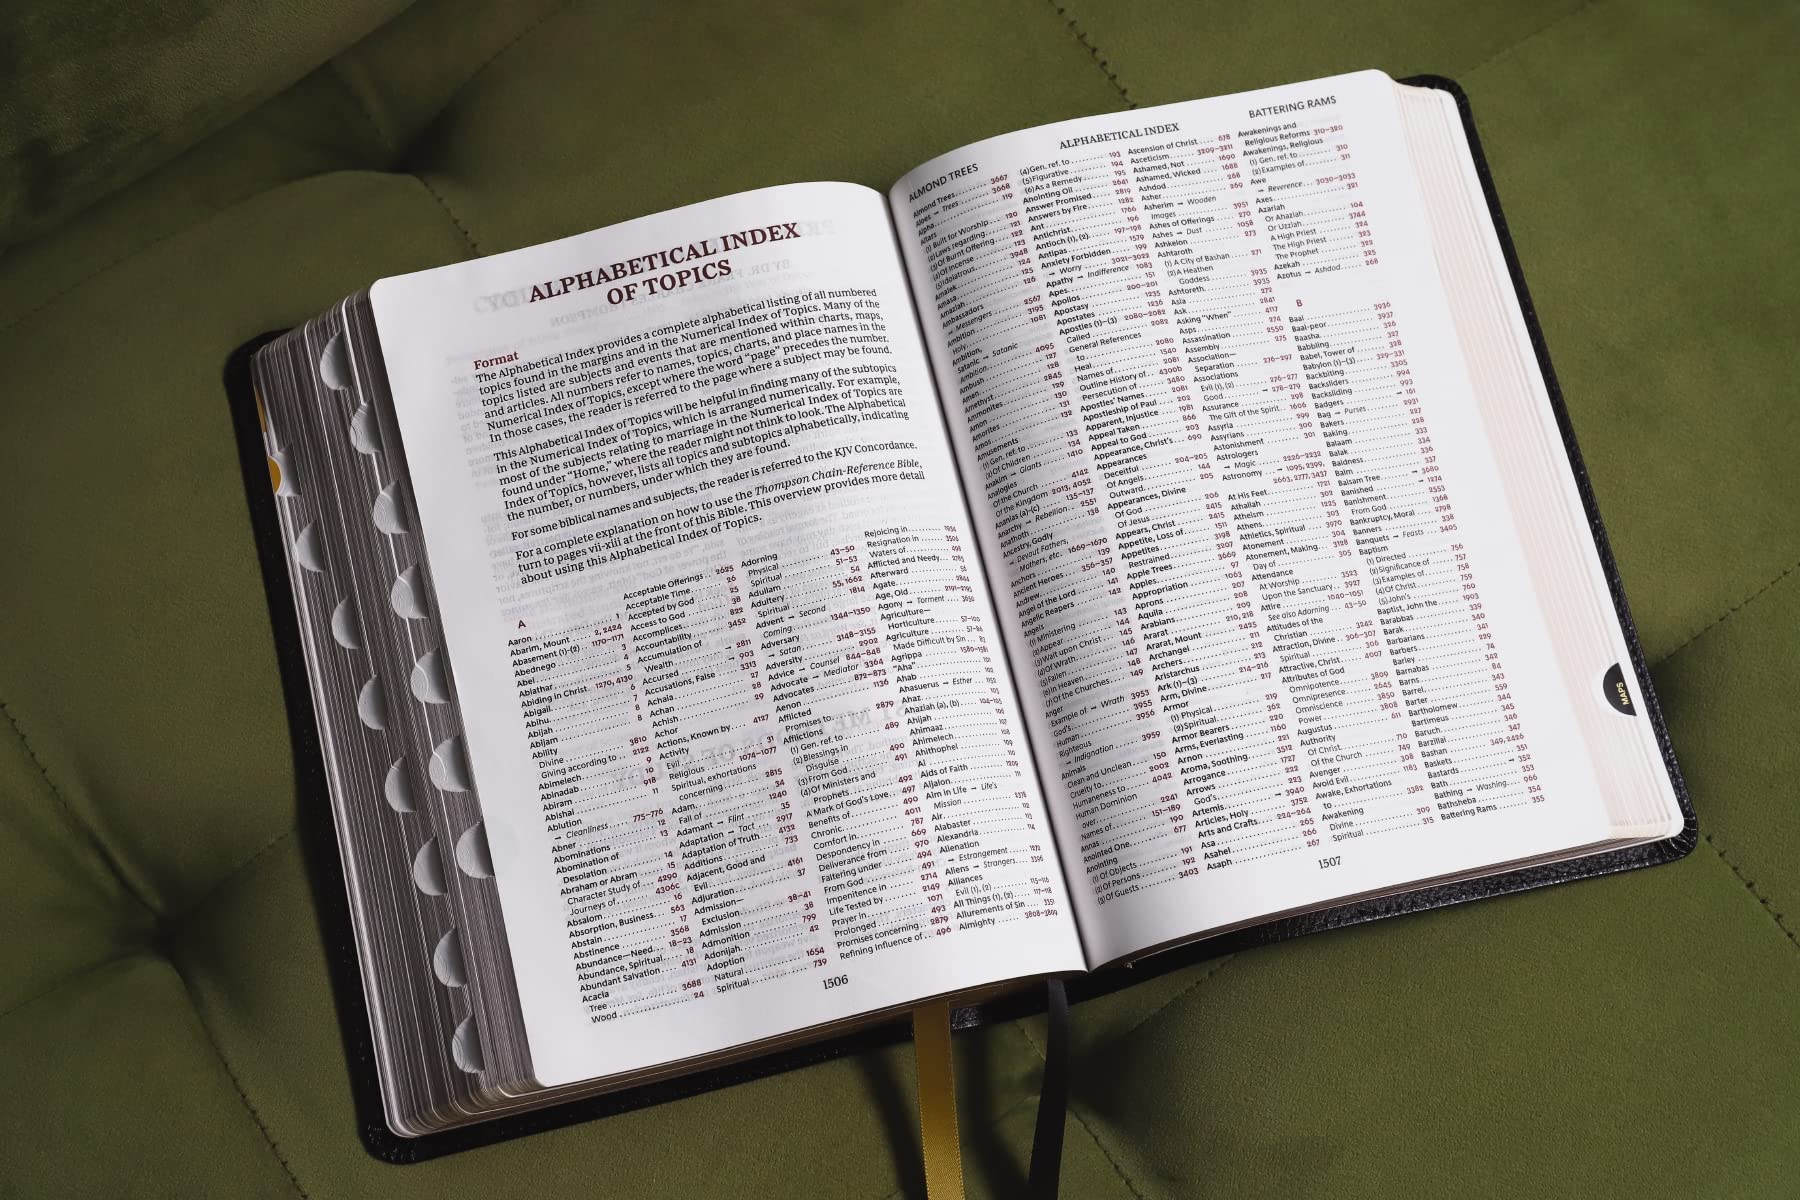 ALPHABETICAL INDEX
OF TOPICS
Format
The Alphabetical Index provides a complete alphabetical listing of all numbered
topics found in the margins and in the Numerical Index of Topics. Many of the
topics listed are subjects and events that are mentioned within charts, maps,
and articles. All numbers refer to names, topics, charts, and place names in the
Numerical Index of Topics, except where the word "page" precedes the number.
In those cases, the reader is referred to the page where a subject may be found.
This Alphabetical Index of Topics will be helpful in finding many of the subtopics
in the Numerical Index of Topics, which is arranged numerically. For example,
most of the subjects relating to marriage in the Numerical Index of Topics are
found under "Home," where the reader might not think to look. The Alphabetical
Index of Topics, however, lists all topics and subtopics alphabetically, indicating
the number, or numbers, under which they are found.
For some biblical names and subjects, the reader is referred to the KJV Concordance.
For a complete explanation on how to use the Thompson Chain-Reference Bible,
turn to pages vii-xiii at the front of this Bible. This overview provides more detail
about using this Alphabetical Index of Topics.
A
Aaron 1
Abarim, Mount 2, 2424
Abasement (1)-(2) 1170-1171
Abednego 3
Abel 4
Abiathar 5
Abiding in Christ 1270, 4130
Abigail 6
Abihu 7
Abijah 8
Abijam 8
Ability
Divine 3810
Giving according to 2122
Abimelech 9
Abinadab 10
Abiram 918
Abishai 11
Ablution
→ Cleanliness 775-776
Abner 12
Abominations 13
Abomination of
Desolation 14
Abraham or Abram 15
Character Study of 4290
Journeys of 4306c
Absalom 16
Absorption, Business 563
Abstain 17
Abstinence 3568
Abundance—Need 18-23
Abundance, Spiritual 18
Abundant Salvation 4131
Acacia
Tree 3688
Wood 24
Acceptable Offerings 2625
Acceptable Time 26
Accepted by God 25
Access to God 38
Accomplices 822
Accountability 3452
Accumulation of
Wealth → 2811
Accursed → 903
Accusations, False 3313
Achaia 27
Achan 28
Achish 29
Achor
Actions, Known by 4127
Activity
Evil 31
Religious 1074-1077
Spiritual, exhortations
concerning 2815
Adam 34
Fall of 1240
Adamant → Flint 35
Adaptation → Tact 2917
Adaptation of Truth 4132
Additions 733
Adjacent, Good and
Evil 4161
Adjuration 37
Admission—
Exclusion 38-41
Admission 38
Admonition 799
Adonijah 42
Adoption
Natural 1654
Spiritual 739
Adorning
Physical 43-50
Spiritual 51-53
Adullam 54
Adultery 55, 1662
Spiritual 1814
Advent → Second
Coming 1344-1350
Adversary
→ Satan 3148-3155
Adversity 2902
Advice → Counsel 844-848
Advocate → Mediator 3364
Advocates 872-873
Aenon 1136
Afflicted
Promises to 2879
Afflictions
(1) Gen. ref. to 489
(2) Blessings in
Disguise 490
(3) From God 491
(4) Of Ministers and
Prophets 492
A Mark of God's Love 497
Benefits of 490
Chronic 4011
Comfort in 787
Despondency in 669
Deliverance from 970
Faltering under 494
From God 491
Impenitence in 2714
Life Tested by 2149
Prayer in 1071
Prolonged 493
Promises concerning 2879
Refining Influence of 496
Rejoicing in 1934
Resignation in
Waters of
Afflicted and Needy
Afterward
Agate
Age, Old
Agony → Torment
Agriculture—
Horticulture
Agriculture
Made Difficult by Sin
Agrippa
"Aha"
Ahab
Ahasuerus → Esther
Ahaz
Ahaziah (a), (b)
Ahijah
Ahimaaz
Ahimelech
Ahithophel
Ai
Aids of Faith
Aijalon
Aim in Life → Life's
Mission
Air
Alabaster
Alexandria
Alienation
→ Estrangement
Aliens → Strangers
Alliances
Evil (1), (2) 115-116
All Things (1), (2) 117-118
Allurements of Sin
Almighty 3808-3809
1506
ALMOND TREES
ALPHABETICAL INDEX
BATTERING RAMS
Almond Trees 3667
Aloes → Trees 3668
Alpha 119
Altars
(1) Built for Worship 120
(2) Laws regarding 121
(3) Of Burnt Offering 122
(4) Of Incense 123
(5) Idolatrous 3948
Amalek 124
Amasa 125
Amaziah 126
Ambassadors
→ Messengers 2567
Ambition 3195
Holy 1081
Ambition,
Satanic → Satanic
Ambition 4095
Ambush 127
Amen 128
Amethyst 2845
Ammonites 129
Amon 130
Amorites 131
Amos 132
Amusements
(1) Gen. ref. to 133
(2) Of Children 134
Anakim → Giants 1410
Analogies
Of the Church 4142
Of the Kingdom 2013, 4052
Ananias (a)-(c) 135-137
Anarchy → Rebellion 2551
Anathoth 138
Ancestry, Godly
→ Devout Fathers,
Mothers, etc. 1669-1670
Anchors 139
Ancient Heroes 356-357
Andrew 140
Angel of the Lord 141
Angelic Reapers 142
Angels
(1) Ministering 143
(2) Appear 144
(3) Wait upon Christ 145
(4) Of Wrath 146
(5) Fallen 147
(6) In Heaven 148
(7) Of the Churches 149
Anger
Example of → Wrath 3953
God's 3955
Human 3956
Righteous
→ Indignation 3959
Animals
Clean and Unclean 150
Cruelty to 2002
Humaneness to 4042
Human Dominion
over 2241
Names of 151-189
Annas 190
Anointed One 677
Anointing
(1) Of Objects 191
(2) Of Persons 192
(3) Of Guests 3403
(4) Gen. ref. to 193
(5) Figurative 194
(6) As a Remedy 195
Anointing Oil 2641
Answer Promised 2819
Answers by Fire 1282
Ant 1766
Antichrist 196
Antioch (1), (2) 197-198
Antipas 1579
Anxiety Forbidden 199
→ Worry 3021-3022
Apathy → Indifference 1083
Apes 151
Apollos 200-201
Apostasy 1235
Apostates 1236
Apostles (1)-(3) 2080-2082
Called 2082
General References
to 2080
Heal 1540
Names of 2081
Outline History of 4300b
Persecution of 3480
Apostles' Names 2081
Apostleship of Paul 202
Apparent, Injustice 1981
Appeal Taken 866
Appeal to God 203
Appearance, Christ's 690
Appearances
Deceitful 204-205
Of Angels 144
Outward 205
Appearances, Divine
Of God 206
Of Jesus 2415
Appears, Christ 2415
Appetite, Loss of 1511
Appetites 3198
Restrained 3207
Apple Trees 3669
Apples 97
Appropriation 1063
Aprons 207
Aquila 208
Arabians 209
Ararat 210, 218
Ararat, Mount 2425
Archangel 211
Archers 212
Aristarchus 213
Ark (1)-(3) 214-216
Arm, Divine 217
Armor
(1) Physical 219
(2) Spiritual 262
Armor Bearers 220
Arms, Everlasting 1160
Army 221
Aroma, Soothing 3512
Arrogance 1727
Arrows 222
God's 223
Artemis → 3940
Articles, Holy 3752
Arts and Crafts 224-264
Asa 265
Asahel 266
Asaph 267
Ascension of Christ 678
Asceticism 3209-3211
Ashamed, Not 1690
Ashamed, Wicked 1688
Ashdod 268
Asher 269
Asherim → Wooden
Images 3951
Ashes of Offerings 270
Ashes → Dust 1058
Ashkelon 273
Ashtaroth
(1) A City of Bashan 271
(2) A Heathen
Goddess 3935
Ashtoreth 3935
Asia 272
Ask 2841
Asking "When" 4117
Asps 274
Assassination 2550
Assembly 275
Association—
Separation 276-297
Associations
Evil (1), (2) 276-277
Good → 278-279
Assurance 298
The Gift of the Spirit 1606
Assyria 299
Assyrians 300
Astonishment 301
Astrologers
→ Magic 2226-2232
Astronomy → 1095, 2399,
2663, 2777, 3437
At His Feet 1721
Athaliah 302
Atheism 1215
Athens 303
Athletics, Spiritual 3970
Atonement 304
Atonement, Making 3128
Day of 305
Attendance
At Worship 3523
Upon the Sanctuary 3927
Attire 1040-1051
See also Adorning 43-50
Attitudes of the
Christian 3242
Attraction, Divine 306-307
Spiritual 306
Attractive, Christ 4007
Attributes of God
Omnipotence 3809
Omnipresence 2645
Omniscience 3850
Power 3808
Augustus 611
Authority
Of Christ 710
Of the Church 749
Avenger 308
Avoid Evil 1183
Awake, Exhortations
to 3382
Awakening
Divine 309
Spiritual 315
Awakenings and
Religious Reforms 310-320
Awakenings, Religious
(1) Gen. ref. to 310
(2) Examples of 311
Awe
→ Reverence 3030-3033
Axes 321
Azariah
Or Ahaziah 104
Or Uzziah 3744
A High Priest 324
The High Priest 323
The Prophet 322
Azekah 325
Azotus → Ashdod 268
B
Baal 3936
Baal-peor 3937
Baasha 326
Babbling 327
Babel, Tower of 328
Babylon (1)-(3) 329-331
Backbiting 3305
Backsliders 994
Backsliding 993
Badgers → 161
Bag → Purses 2931
Bakers 227
Baking 228
Balaam 333
Balak 334
Baldness 336
Balm 337
Balsam Tree → 3680
Banished → 1274
Banishment 2553
From God 1368
Bankruptcy, Moral 2798
Banners 338
Banquets → Feasts 3405
Baptism
(1) Directed 756
(2) Significance of 757
(3) Examples of 758
(4) Of Christ 760
(5) John's 759
Baptist, John the 1903
Barabbas 339
Barak 340
Barbarians 341
Barbers 229
Barley 74
Barnabas 342
Barns 84
Barrel 343
Barter 559
Bartholomew 344
Bartimeus 345
Baruch 346
Barzillai 347
Bashan 349, 2426
Baskets 351
Bastards →
Bath 353
Bathing → Washing 966
Bathsheba 354
Battering Rams 355
MAPS
1507